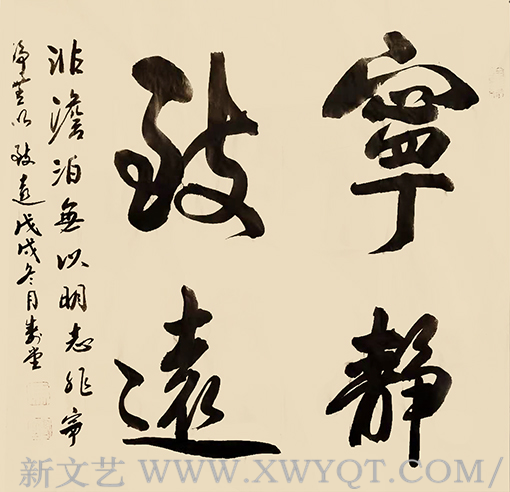 寧靜
致遠
非澹泊無以明志非寧
靜無以致遠戊戌冬月
新文艺 WWW.XWYQT.COM/